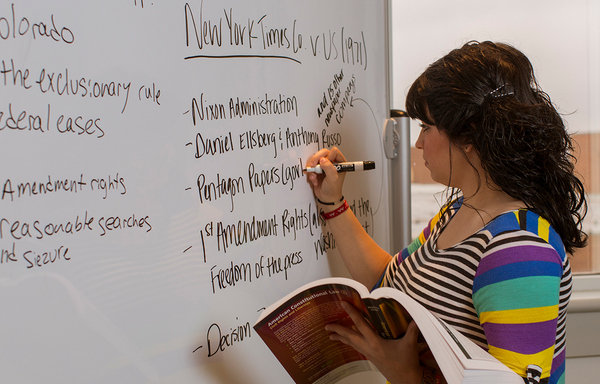 olorado
the exclusionary rule
ederal cases
Amendment rights
reasonable searches
nd seizure
New York Times Co. v US (1971)
- Nixon Administration
- Daniel Ellsberg & Anthony Russo
- Pentagon Papers (gov
- 1st Amendment Rights (
Freedom of the press
- Decision
and is this
another
company
the
American Constitutional Law